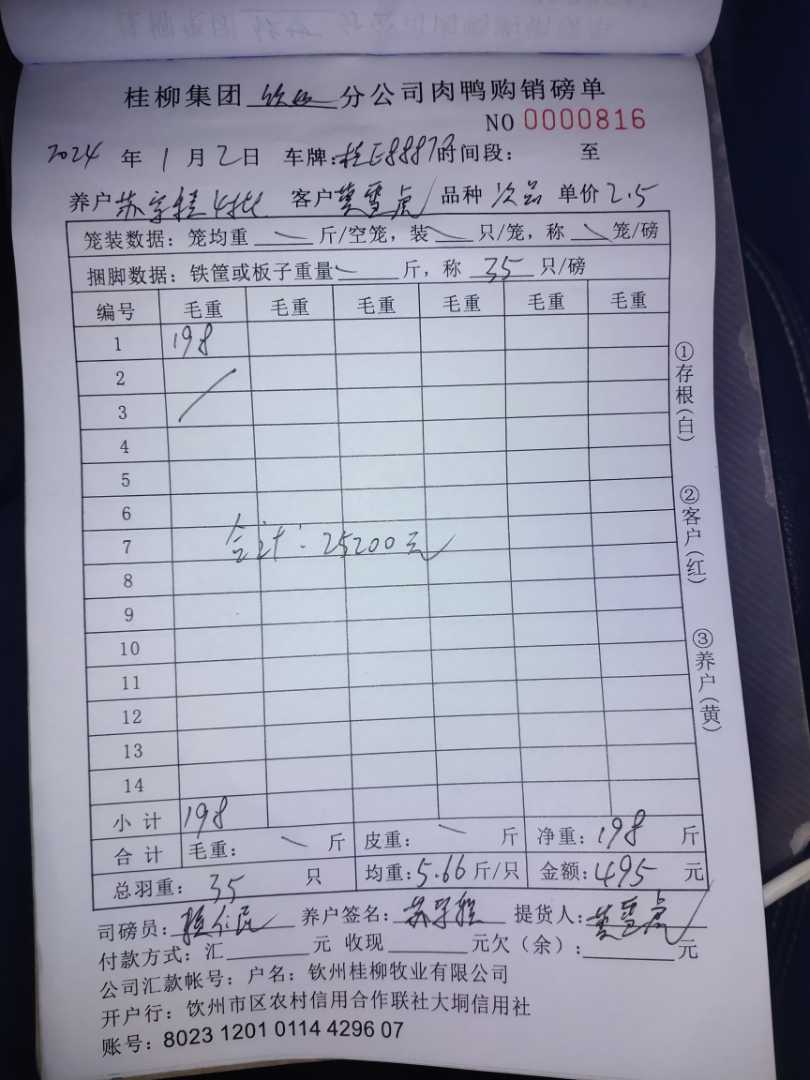 桂柳集团 钦州 分公司肉鸭购销磅单
NO 0000816
2024 年 1 月 2 日 车牌:桂E88878 时间段: 至
养户 苏 客户 黄雪虎 品种 次品 单价 2.5
笼装数据: 笼均重 斤/空笼, 装 只/笼, 称 笼/磅
捆脚数据: 铁筐或板子重量 斤, 称 35 只/磅
编号 毛重 毛重 毛重 毛重 毛重 毛重
1 198
2
3
4
5
6
7
合计: 25200元
8
9
10
11
12
13
14
小计 198
合计 毛重: 斤 皮重: 斤 净重: 198 斤
总羽重: 35 只 均重: 5.66 斤/只 金额: 495 元
司磅员: 养户签名: 苏 提货人: 黄雪虎
付款方式: 汇 元 收现 元欠(余): 元
公司汇款帐号: 户名: 钦州桂柳牧业有限公司
开户行: 饮州市区农村信用合作联社大垌信用社
账号: 8023 1201 0114 4296 07
①存根(白)
②客户(红)
③养户(黄)